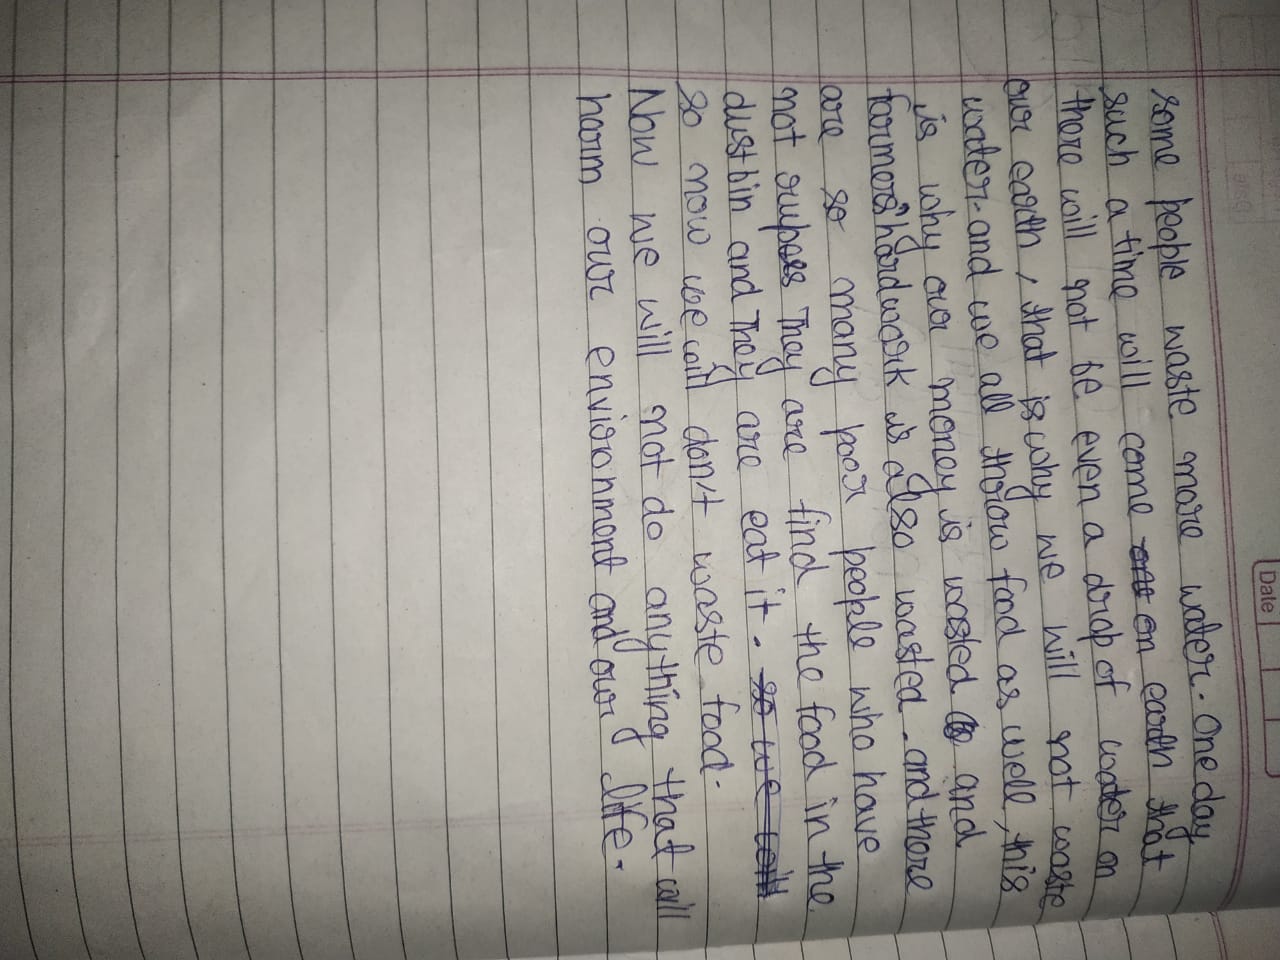 Date
some people waste more water. One day
such a time will come on earth that
there will not be even a drop of water on
our earth, that is why we will not waste
water. and we all throow food as well, this
is why our money is wasted and
farmers hardwork is also wasted. and there
are so many poor people who have
not rupees They are find the food in the
dustbin and They are eat it. so we will
so now we will don't waste food.
Now we will not do any thing that will
harm our envioronment and our life.